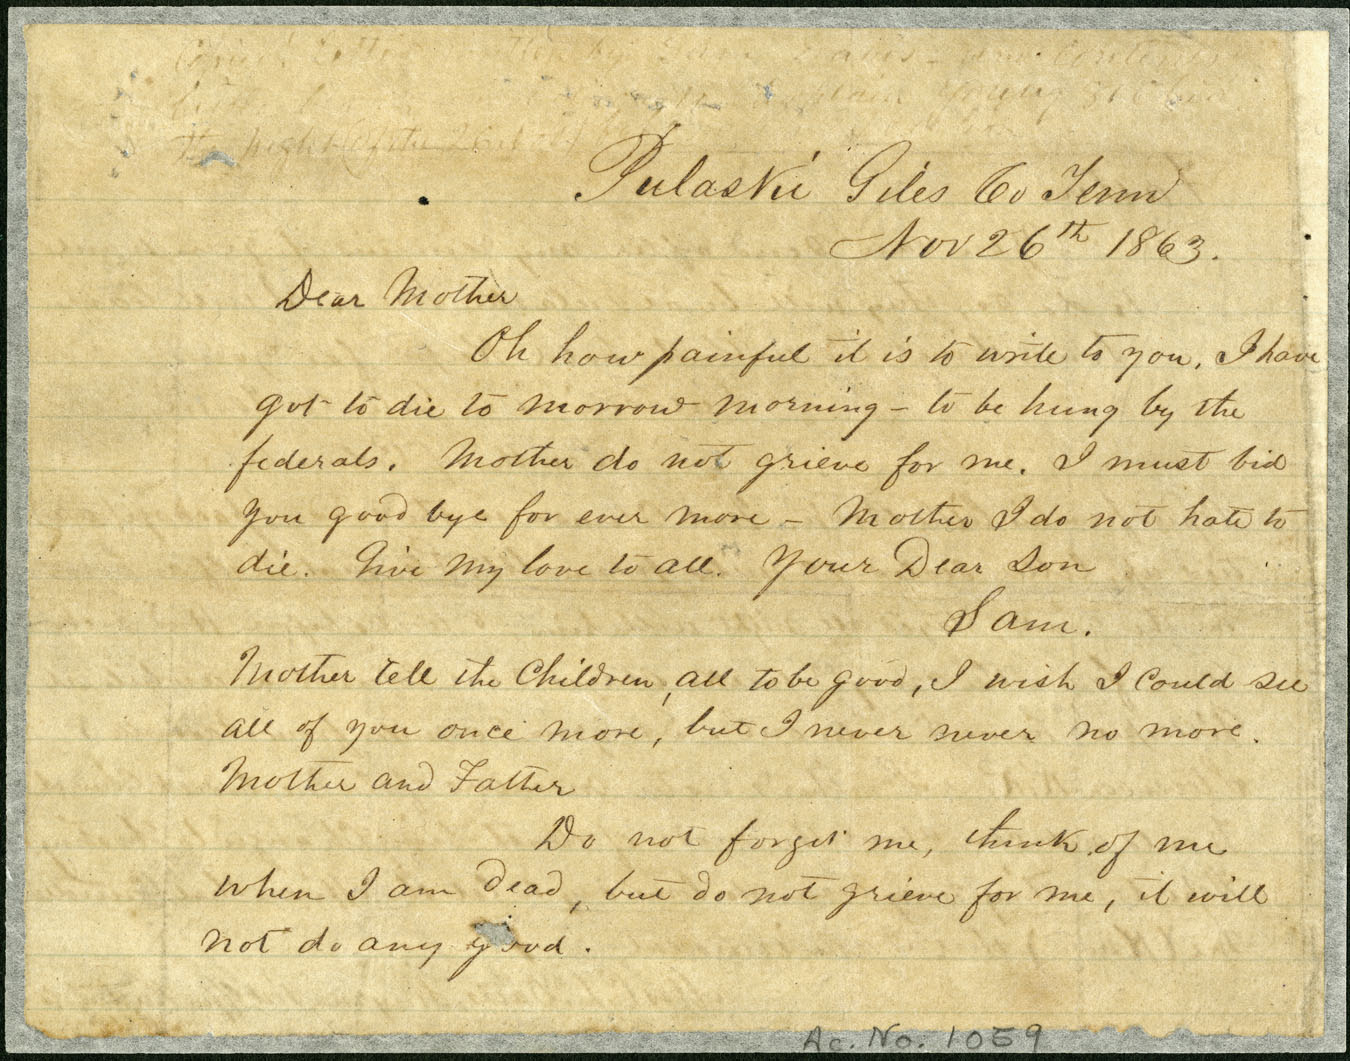 Pulaski Giles Co Tenn
Nov 26th 1863.
Dear Mother
Oh how painful it is to write to you, I have
got to die to morrow morning – to be hung by the
federals. Mother do not grieve for me. I must bid
you good bye for ever more – Mother I do not hate to
die. Give my love to all. Your Dear Son
Sam.
Mother tell the Children, all to be good, I wish I could see
all of you once more, but I never never no more.
Mother and Father
Do not forget me, think of me
when I am dead, but do not grieve for me, it will
not do any good.
Ac. No. 1059